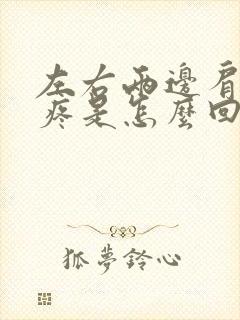 左右兩邊肩
疼是怎麼回
狐夢鈴心